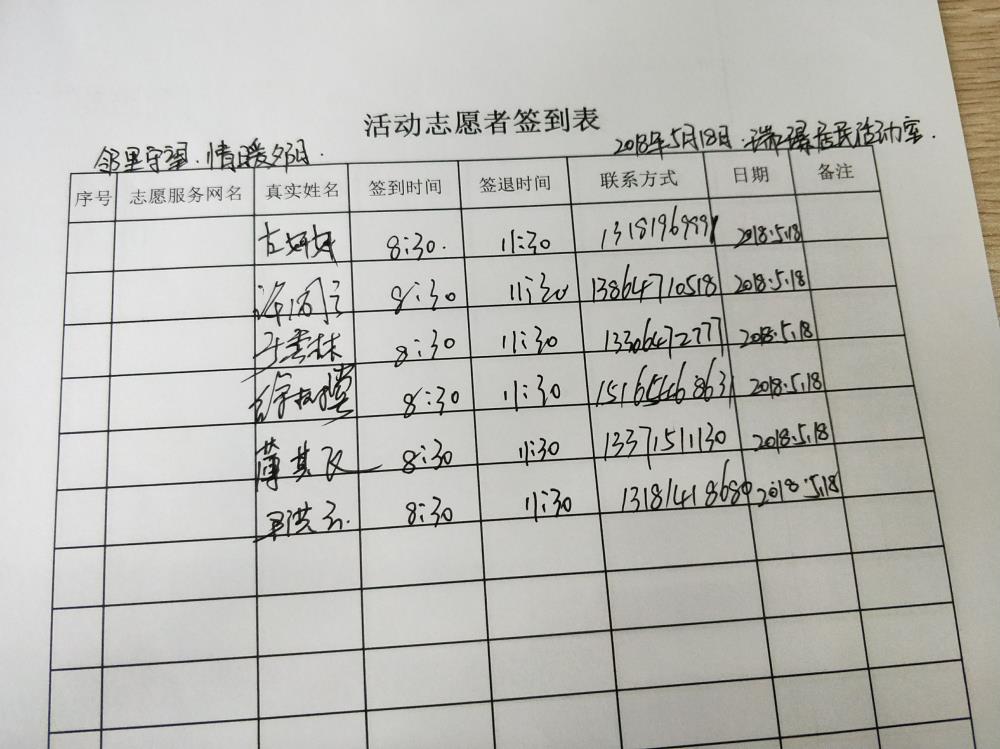 活动志愿者签到表
邻里守望.情暖夕阳. 2018年5月18日.瑞璟居民活动室.
序号 志愿服务网名 真实姓名 签到时间 签退时间 联系方式 日期 备注
8:30. 11:30 2018.5.18
8:30 11:30 13864710518 2018.5.18
于雪林 8:30 11:30 13306472777 2018.5.18
8:30 11:30 15165446863 2018.5.18
薄其及 8:30 11:30 13371511130 2018.5.18
王洪云. 8:30 11:30 13181418680 2018.5.18